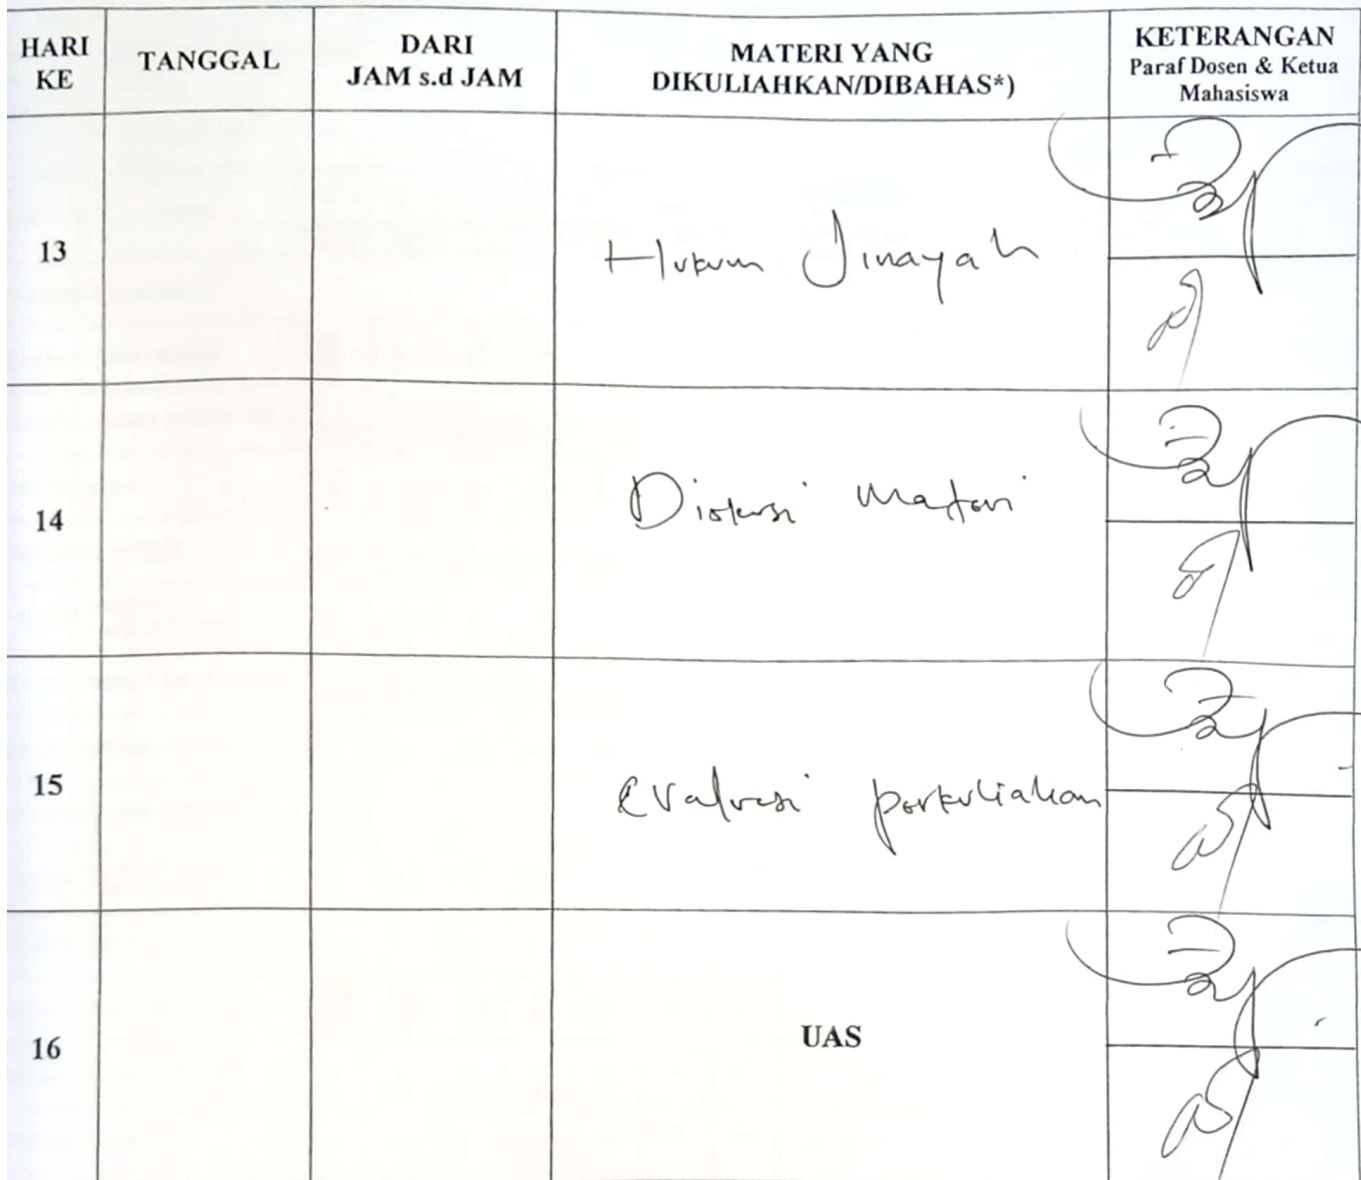 HARI KE
TANGGAL
DARI
JAM s.d JAM
MATERI YANG
DIKULIAHKAN/DIBAHAS*)
KETERANGAN
Paraf Dosen & Ketua
Mahasiswa
13
Hukum Jinayah
14
Diskusi Materi
15
Evaluasi perkuliahan
16
UAS